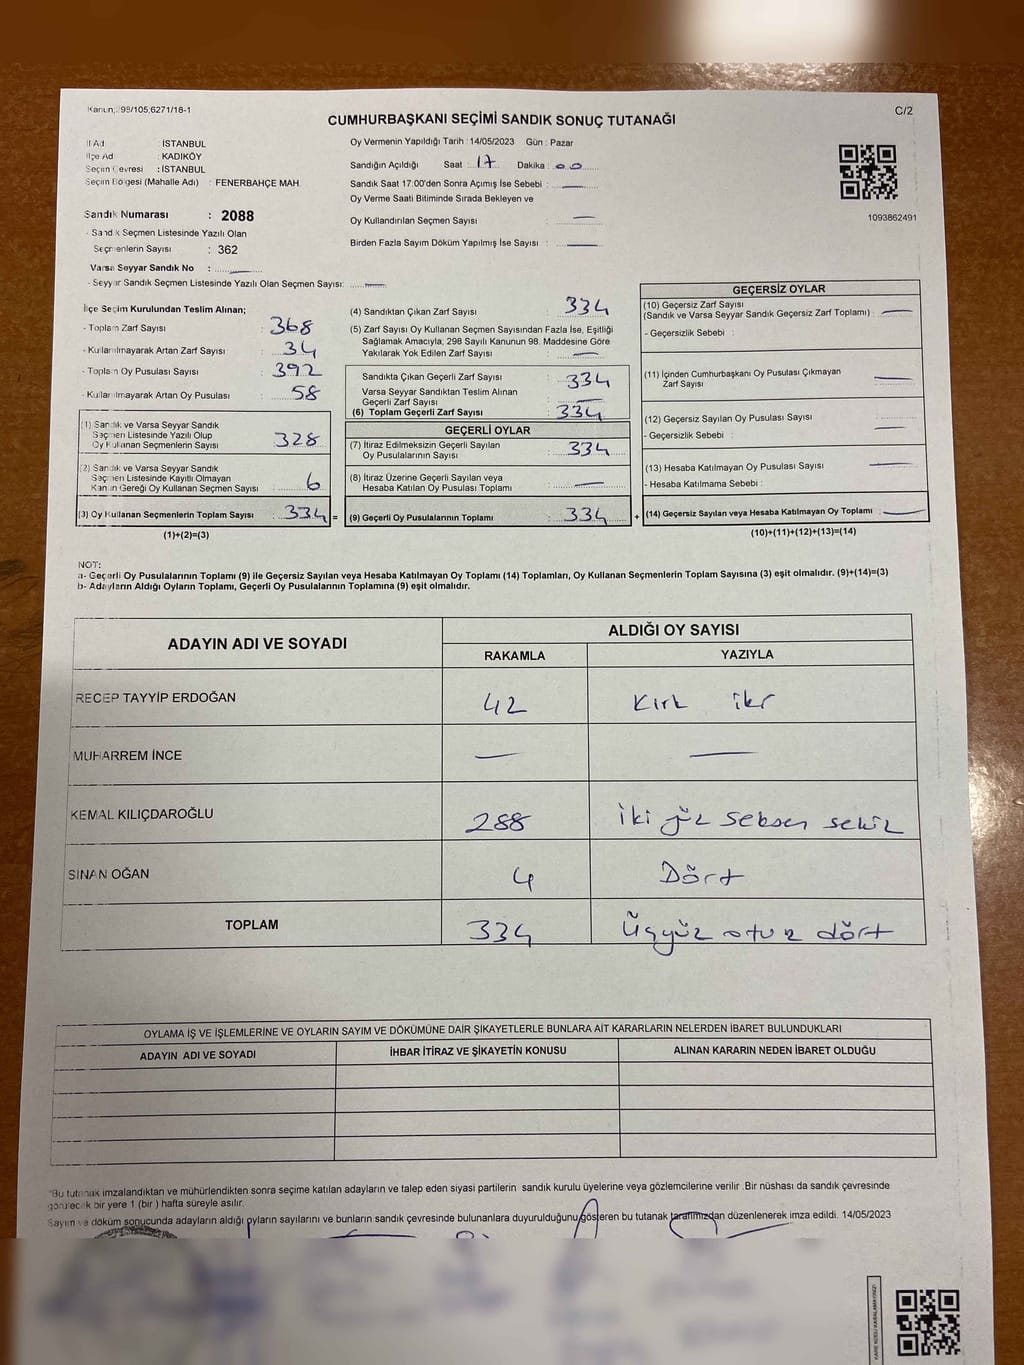 Kanun; 298/105;6271/18-1
C/2
CUMHURBAŞKANI SEÇİMİ SANDIK SONUÇ TUTANAĞI
İl Adı : İSTANBUL
İlçe Adı : KADIKÖY
Seçim Çevresi : İSTANBUL
Seçim Bölgesi (Mahalle Adı) : FENERBAHÇE MAH.
Sandık Numarası : 2088
- Sandık Seçmen Listesinde Yazılı Olan
Seçmenlerin Sayısı : 362
Varsa Seyyar Sandık No :
- Seyyar Sandık Seçmen Listesinde Yazılı Olan Seçmen Sayısı:
Oy Vermenin Yapıldığı Tarih : 14/05/2023 Gün : Pazar
Sandığın Açıldığı Saat : 17 Dakika : 00
Sandık Saat 17:00'den Sonra Açımış İse Sebebi : —
Oy Verme Saati Bitiminde Sırada Bekleyen ve
Oy Kullandırılan Seçmen Sayısı : —
Birden Fazla Sayım Döküm Yapılmış İse Sayısı : —
1093862491
İlçe Seçim Kurulundan Teslim Alınan;
- Toplam Zarf Sayısı : 368
- Kullanılmayarak Artan Zarf Sayısı : 34
- Toplam Oy Pusulası Sayısı : 392
- Kullanılmayarak Artan Oy Pusulası : 58
(1) Sandık ve Varsa Seyyar Sandık
Seçmen Listesinde Yazılı Olup
Oy Kullanan Seçmenlerin Sayısı : 328
(2) Sandık ve Varsa Seyyar Sandık
Seçmen Listesinde Kayıtlı Olmayan
Kanun Gereği Oy Kullanan Seçmen Sayısı : 6
(3) Oy Kullanan Seçmenlerin Toplam Sayısı : 334 =
(1)+(2)=(3)
(4) Sandıktan Çıkan Zarf Sayısı : 334
(5) Zarf Sayısı Oy Kullanan Seçmen Sayısından Fazla İse, Eşitliği
Sağlamak Amacıyla; 298 Sayılı Kanunun 98. Maddesine Göre
Yakılarak Yok Edilen Zarf Sayısı : —
Sandıkta Çıkan Geçerli Zarf Sayısı : 334
Varsa Seyyar Sandıktan Teslim Alınan
Geçerli Zarf Sayısı : —
(6) Toplam Geçerli Zarf Sayısı : 334
GEÇERLİ OYLAR
(7) İtiraz Edilmeksizin Geçerli Sayılan
Oy Pusulalarının Sayısı : 334
(8) İtiraz Üzerine Geçerli Sayılan veya
Hesaba Katılan Oy Pusulası Toplamı : —
(9) Geçerli Oy Pusulalarının Toplamı : 334 +
GEÇERSİZ OYLAR
(10) Geçersiz Zarf Sayısı
(Sandık ve Varsa Seyyar Sandık Geçersiz Zarf Toplamı) : —
- Geçersizlik Sebebi :
(11) İçinden Cumhurbaşkanı Oy Pusulası Çıkmayan
Zarf Sayısı : —
(12) Geçersiz Sayılan Oy Pusulası Sayısı : —
- Geçersizlik Sebebi :
(13) Hesaba Katılmayan Oy Pusulası Sayısı : —
- Hesaba Katılmama Sebebi :
(14) Geçersiz Sayılan veya Hesaba Katılmayan Oy Toplamı : —
(10)+(11)+(12)+(13)=(14)
NOT:
a- Geçerli Oy Pusulalarının Toplamı (9) ile Geçersiz Sayılan veya Hesaba Katılmayan Oy Toplamı (14) Toplamları, Oy Kullanan Seçmenlerin Toplam Sayısına (3) eşit olmalıdır. (9)+(14)=(3)
b- Adayların Aldığı Oyların Toplamı, Geçerli Oy Pusulalarının Toplamına (9) eşit olmalıdır.
ADAYIN ADI VE SOYADI
ALDIĞI OY SAYISI
RAKAMLA YAZIYLA
RECEP TAYYİP ERDOĞAN 42 Kırk iki
MUHARREM İNCE — —
KEMAL KILIÇDAROĞLU 288 iki yüz seksen sekiz
SİNAN OĞAN 4 Dört
TOPLAM 334 Üçyüz otuz dört
OYLAMA İŞ VE İŞLEMLERİNE VE OYLARIN SAYIM VE DÖKÜMÜNE DAİR ŞİKAYETLERLE BUNLARA AİT KARARLARIN NELERDEN İBARET BULUNDUKLARI
ADAYIN ADI VE SOYADI İHBAR İTİRAZ VE ŞİKAYETİN KONUSU ALINAN KARARIN NEDEN İBARET OLDUĞU
*Bu tutanak imzalandıktan ve mühürlendikten sonra seçime katılan adayların ve talep eden siyasi partilerin sandık kurulu üyelerine veya gözlemcilerine verilir .Bir nüshası da sandık çevresinde
görülecek bir yere 1 (bir ) hafta süreyle asılır.
Sayım ve döküm sonucunda adayların aldığı oyların sayılarını ve bunların sandık çevresinde bulunanlara duyurulduğunu gösteren bu tutanak tarafımızdan düzenlenerek imza edildi. 14/05/2023